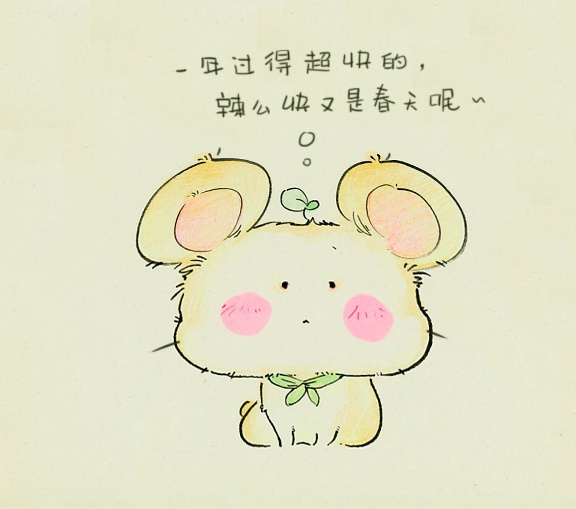 一年过得超快的，
辣么快又是春天呢~